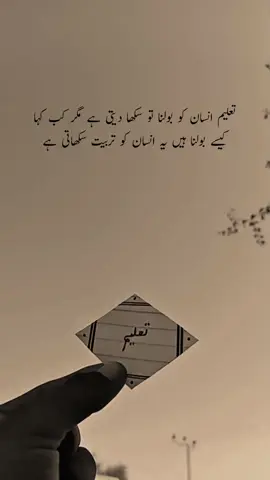 تعلیم انسان کو بولنا تو سکھا دیتی ہے مگر کب کہا
کیسے بولنا ہیں یہ انسان کو تربیت سکھاتی ہے
تعلیم